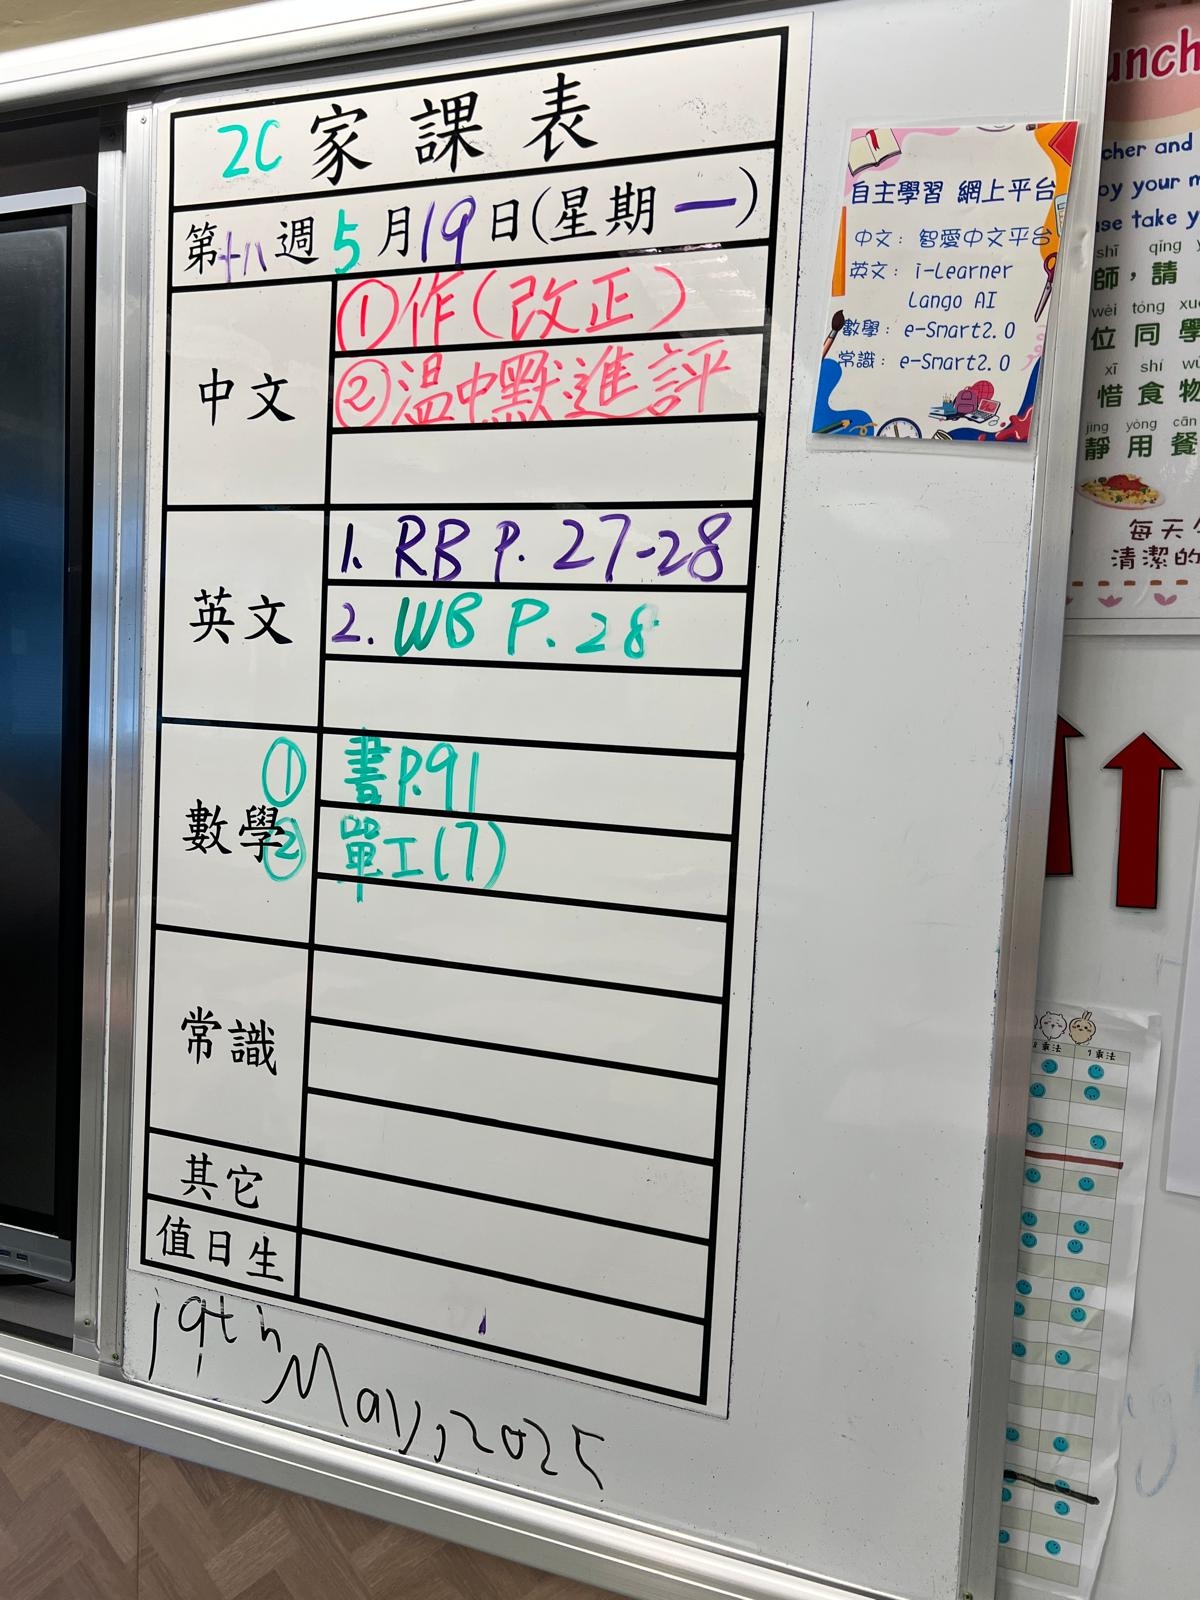 2C 家課表
第十八週 5月19日(星期一)
中文
①作(改正)
②溫中默進評
英文
1. RB P. 27-28
2. WB P. 28
數學
① 書P.91
② 單工(7)
常識
其它
值日生
19th May, 2025
自主學習 網上平台
中文: 智愛中文平台
英文: i-Learner
Lango AI
數學: e-Smart2.0
常識: e-Smart2.0
unch
cher and
oy your m
ase take y
shī qíng
師,請
wèi tóng xué
位同學
xī shí wù
惜食物
jìng yòng cān
靜用餐
每天
清潔的
乘法
7乘法